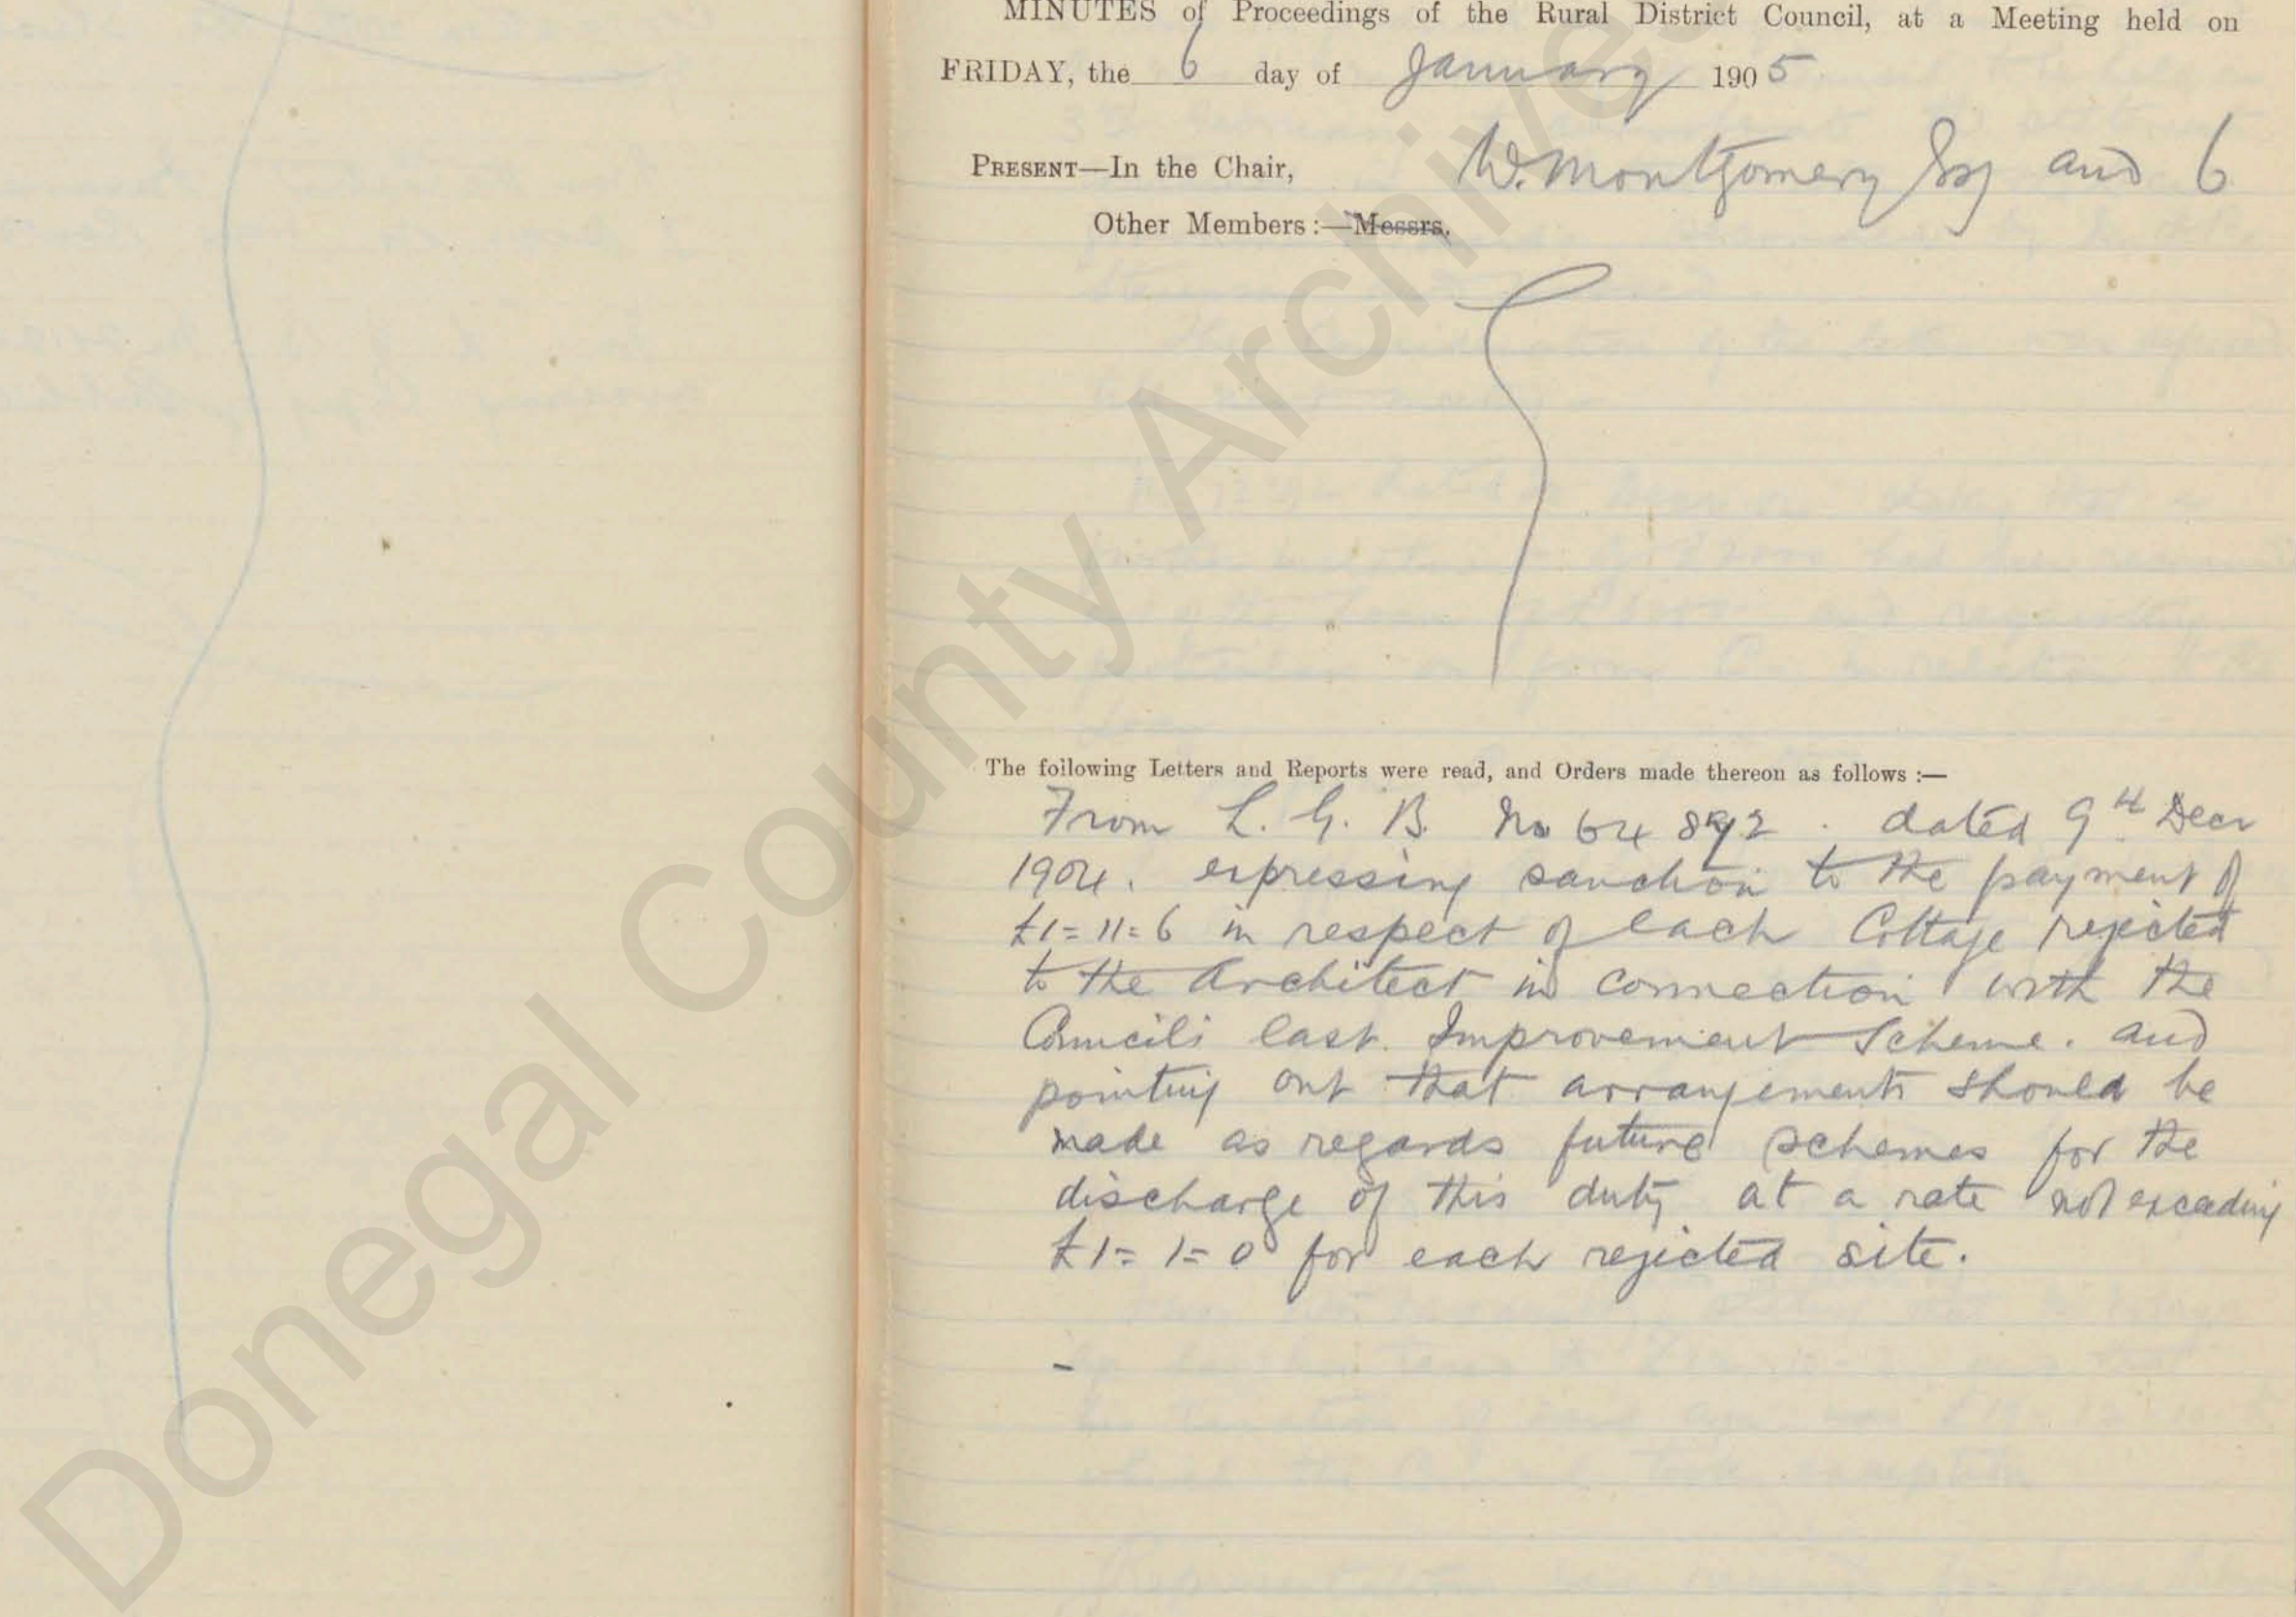 MINUTES of Proceedings of the Rural District Council, at a Meeting held on
FRIDAY, the 6 day of January 1905
PRESENT—In the Chair, W. Montgomery Esq and 6
Other Members :—Messrs.
The following Letters and Reports were read, and Orders made thereon as follows :—
From L. G. B. No 64892. dated 9th Decr
1904. expressing sanction to the payment of
£1=11=6 in respect of each Cottage rejected
to the Architect in connection with the
Councils last. Improvement Scheme. and
pointing out that arrangements should be
made as regards future schemes for the
discharge of this duty at a rate not exceeding
£1=1=0 for each rejected site.
Donegal County Archives